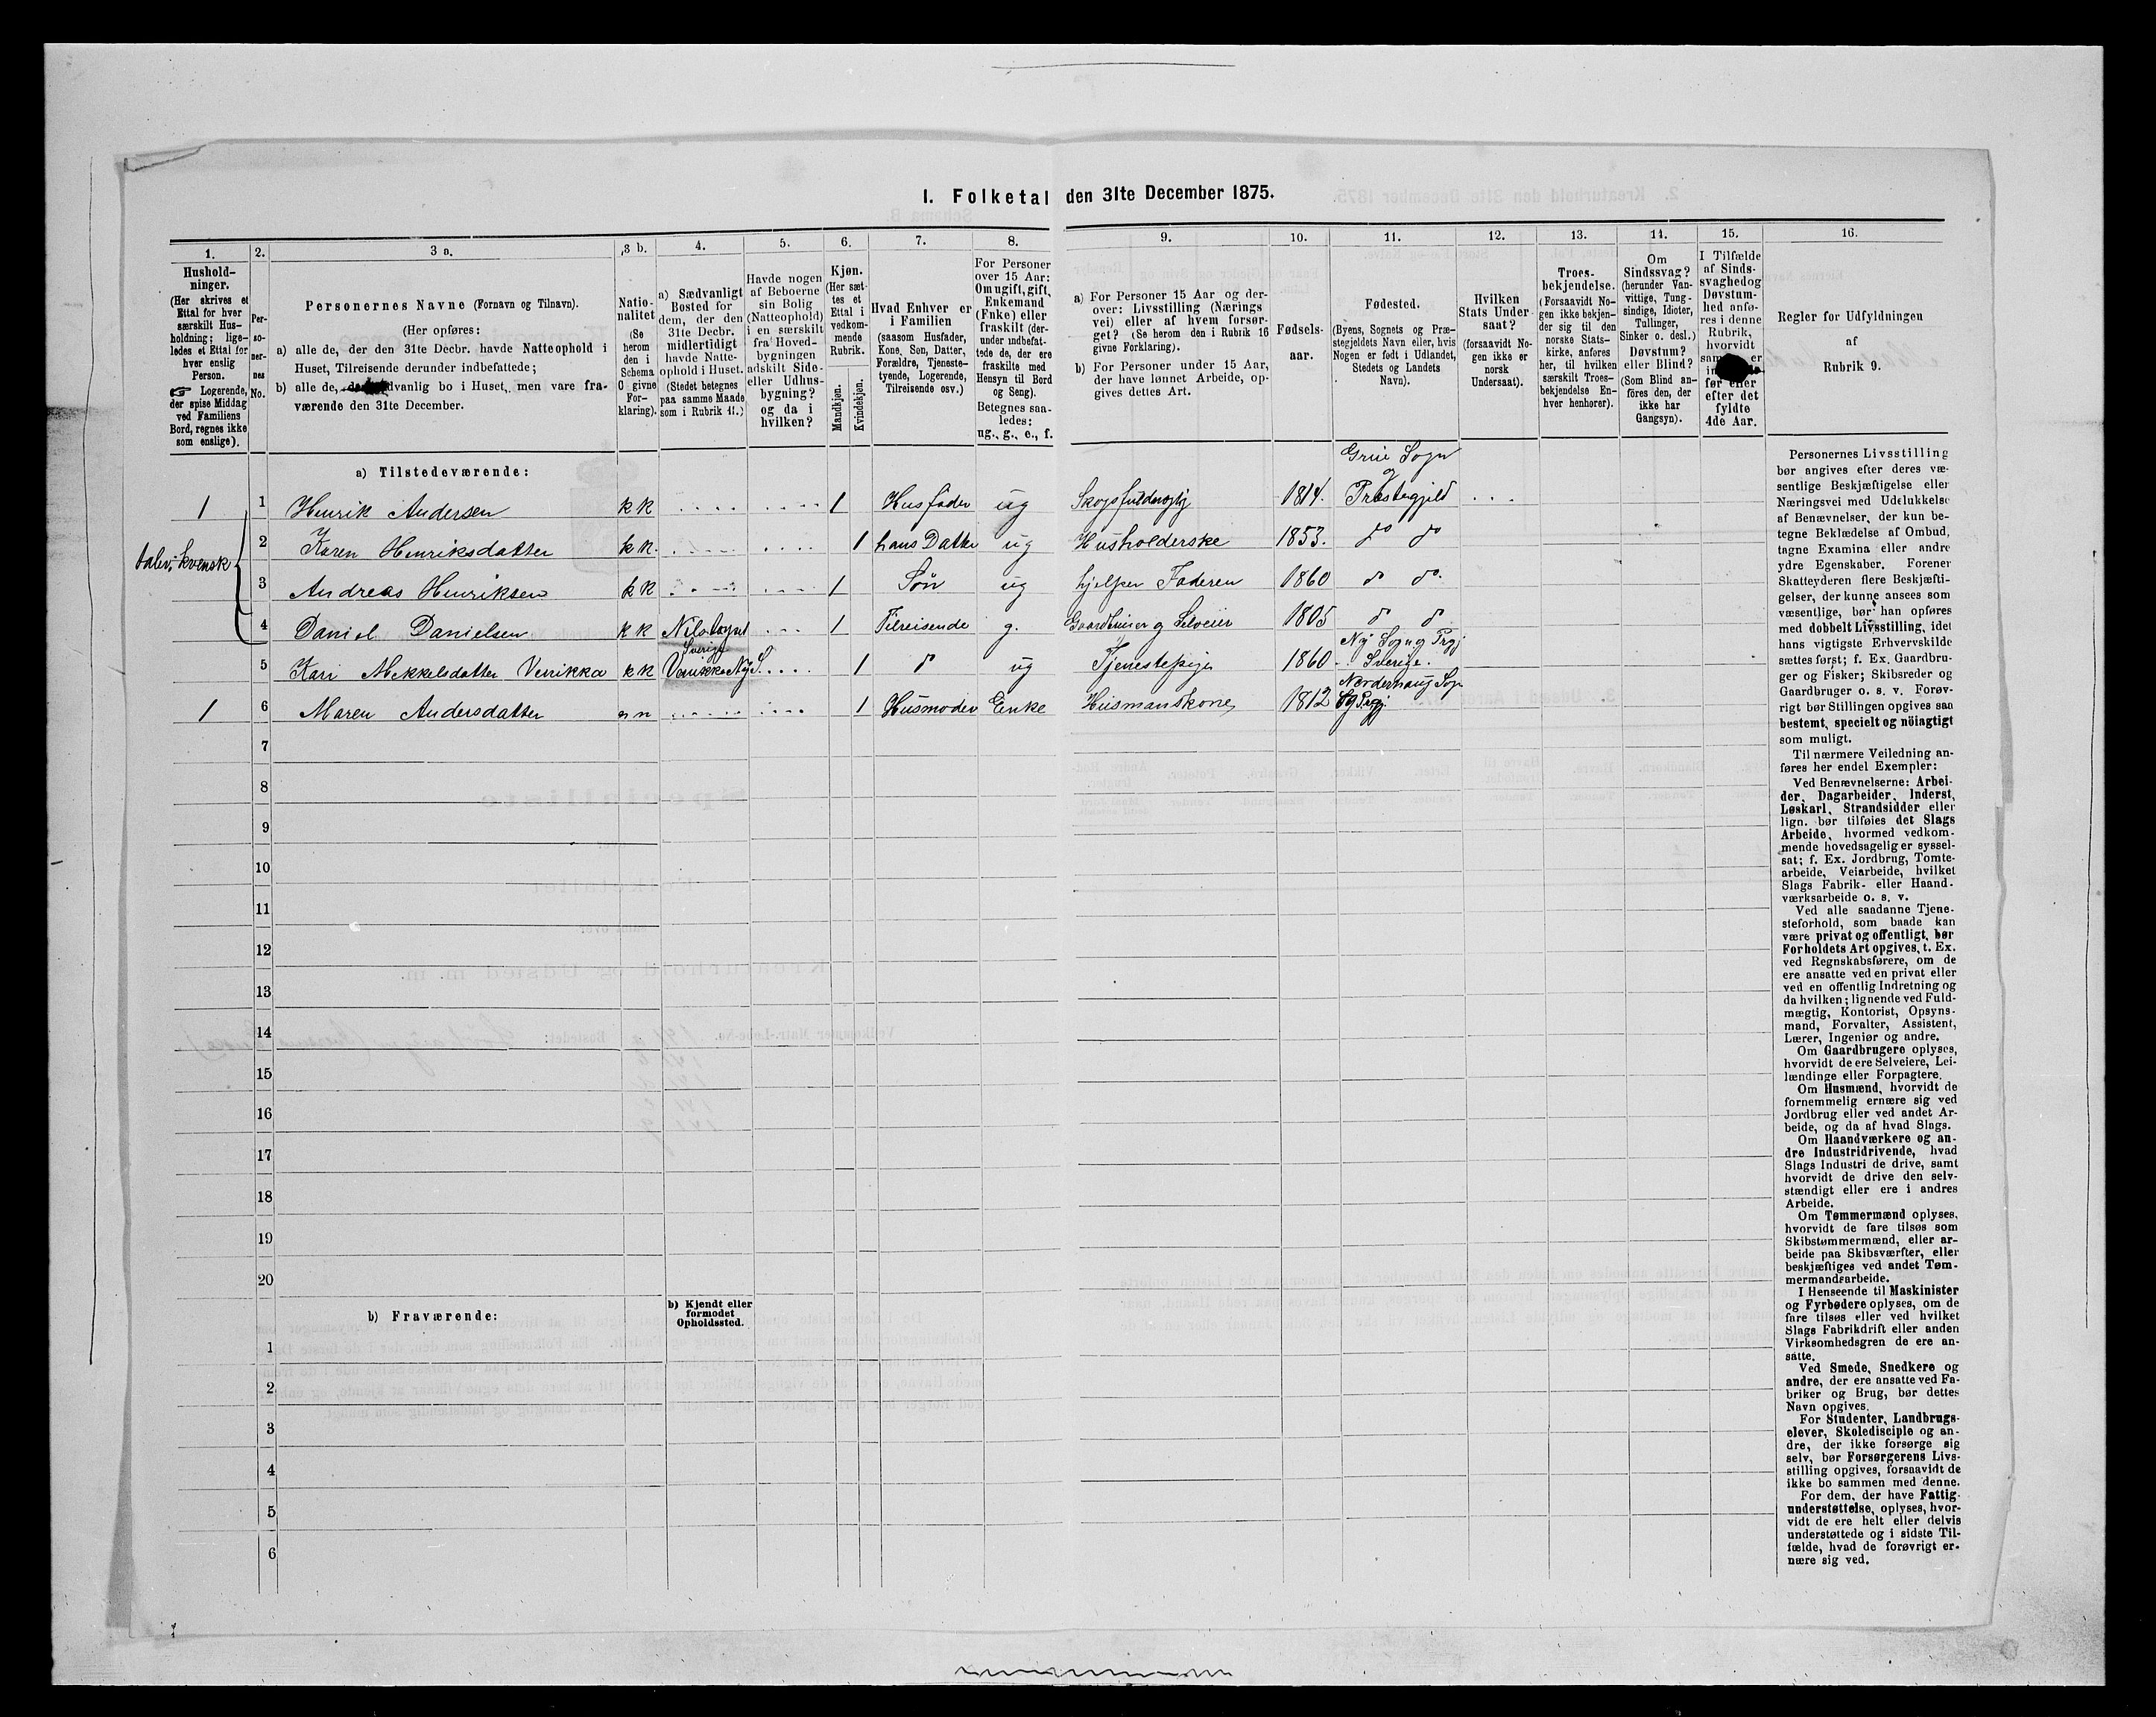 I. Folketal den 31te December 1875.
1.
2.
3 a.
3 b.
4.
5.
6.
7.
8.
9.
10.
11.
12.
13.
14.
15.
16.
Hushold-
ninger.
(Her skrives et
Ettal for hver
særskilt Hus-
holdning; lige-
ledes et Ettal for
hver enslig
Person.
Logerende,
der spise Middag
ved Familiens
Bord, regnes ikke
som enslige).
Per-
so-
ner-
nes
No.
Personernes Navne (Fornavn og Tilnavn).
(Her opføres:
a) alle de, der den 31te Decbr. havde Natteophold i
Huset, Tilreisende derunder indbefattede;
b) alle de, sædvanlig bo i Huset, men vare fra-
værende den 31te December.
Natio-
nalitet
(Se
herom
den i
Schema
O givne
For-
klaring).
a) Sædvanligt
Bosted for
dem, der den
31te Decbr.
midlertidigt
havde Natte-
ophold i Huset.
(Stedet betegnes
paa samme Maade
som i Rubrik 11.)
Havde nogen
af Beboerne
sin Bolig
(Natteophold)
i en særskilt
fra Hoved-
bygningen
adskilt Side-
eller Udhus-
bygning?
og da i
hvilken?
Kjøn.
(Her sæt-
tes et
Ettal i
vedkom-
mende
Rubrik.
Mandkjøn.
Kvindekjøn.
Hvad Enhver er
i Familien
(saasom Husfader,
Kone, Søn, Datter,
Forældre, Tjeneste-
tyende, Logerende,
Tilreisende osv.)
For Personer
over 15 Aar:
Om ugift, gift,
Enkemand
(Enke) eller
fraskilt (der-
under indbefat-
tede de, der ere
fraskilte med
Hensyn til Bord
og Seng).
Betegnes saa-
ledes:
ug., g., e., f.
a) For Personer 15 Aar og der-
over: Livsstilling (Nærings
vei) eller af hvem forsør-
get? (Se herom den i Rubrik 16
givne Forklaring).
b) For Personer under 15 Aar,
der have lønnet Arbeide, op-
gives dettes Art.
Fødsels-
aar.
Fødested.
(Byens, Sognets og Præ-
stegjeldets Navn eller, hvis
Nogen er født i Udlandet,
Stedets og Landets
Navn).
Hvilken
Stats Under-
saat?
(forsaavidt No-
gen ikke er
norsk
Undersaat).
Troes-
bekjendelse.
(Forsaavidt No-
gen ikke bekjen-
der sig til den
norske Stats-
kirke, anføres
her, til hvilken
særskilt Troes-
bekjendelse En-
hver henhører).
Om
Sindssvag?
(herunder Van-
vittige, Tung-
sindige, Idioter,
Tullinger,
Sinker o. desl.)
Døvstum?
eller Blind?
(Som Blind an-
føres den, der
ikke har
Gangsyn).
I Tilfælde
af Sinds-
svaghed og
Døvstum-
hed anfø-
res i denne
Rubrik,
hvorvidt
er
før eller
efter det
fyldte
4de Aar.
Regler for Udfyldningen
af
Rubrik 9.
a) Tilstedeværende:
Grue Sogn
og
1 1 Henrik Andersen kk .... .... 1 Husfader ug 1814. Præstegjeld ...
2 Karen Henriksdatter kk. .... .... 1 hans Datter ug Husholderske 1853. do do
3 Andreas Henriksen kk .... .... 1 Søn ug hjelper Faderen 1860 do do.
halv: kvensk
4 Daniel Danielsen kk ... 1 Tilreisende g. Gaardbruger og Selveier 1805 do do
Ny Sogn og Prgj
Sverige
5 Kari Mekkelsdatter Verrikka kk .... 1 do ug Tjenestepige 1860 Sverige.
1 6 Maren Andersdatter nn .... .... 1 Husmoder Enke Husmanskone 1812
7
8
9
10
11
12
13
14
15
16
17
18
19
20
b) Fraværende:
b) Kjendt eller
formodet
Opholdssted.
1
2
3
4
5
6
Personernes Livsstilling
bør angives efter deres væ-
sentlige Beskjæftigelse eller
Næringsvei med Udelukkelse
af Benævnelser, der kun be-
tegne Beklædelse af Ombud,
tagne Examina eller andre
ydre Egenskaber. Forener
Skatteyderen flere Beskjæfti-
gelser, der kunne ansees som
væsentlige, bør han opføres
med dobbelt Livsstilling, idet
hans vigtigste Erhvervskilde
sættes først; f. Ex. Gaardbru-
ger og Fisker; Skibsreder og
Gaardbruger o. s. v. Forøv-
rigt bør Stillingen opgives saa
bestemt, specielt og nöiagtigt
som muligt.
Til nærmere Veiledning an-
føres her endel Exempler:
Ved Benævnelserne: Arbei-
der, Dagarbeider, Inderst,
Løskarl, Strandsidder eller
lign. bør tilføies det Slags
Arbeide, hvormed vedkom-
mende hovedsagelig er syssel-
sat; f. Ex. Jordbrug, Tomte-
arbeide, Veiarbeide, hvilket
Slags Fabrik- eller Haand-
værksarbeide o. s. v.
Ved alle saadanne Tjene-
steforhold, som baade kan
være privat og offentligt, bør
Forholdets Art opgives, t. Ex.
ved Regnskabsførere, om de
ere ansatte ved en privat eller
ved en offentlig Indretning og
da hvilken; lignende ved Fuld-
mægtig, Kontorist, Opsyns-
mand, Forvalter, Assistent,
Lærer, Ingeniør og andre.
Om Gaardbrugere oplyses,
hvorvidt de ere Selveiere, Lei-
lændinge eller Forpagtere.
Om Husmænd, hvorvidt de
fornemmelig ernære sig ved
Jordbrug eller ved andet Ar-
beide, og da af hvad Slags.
Om Haandværkere og an-
dre Industridrivende, hvad
Slags Industri de drive, samt
hvorvidt de drive den selv-
stændigt eller ere i andres
Arbeide.
Om Tømmermænd oplyses,
hvorvidt de fare tilsøs som
Skibstømmermænd, eller ar-
beide paa Skibsværfter, eller
beskjæftiges ved andet Tøm-
mermandsarbeide.
I Henseende til Maskinister
og Fyrbødere oplyses, om de
fare tilsøs eller ved hvilket
Slags Fabrikdrift eller anden
Virksomhedsgren de ere an-
satte.
Ved Smede, Snedkere og
andre, der ere ansatte ved Fa-
briker og Brug, bør dettes
Navn opgives.
For Studenter, Landbrugs-
elever, Skoledisciple og an-
dre, der ikke forsørge sig
selv, bør Forsørgerens Livs-
stilling opgives, forsaavidt de
ikke bo sammen med denne.
For dem, der have Fattig-
understøttelse, oplyses, hvor-
vidt de ere helt eller delvis
understøttede og i sidste Til-
fælde, hvad de forøvrigt er-
nære sig ved.